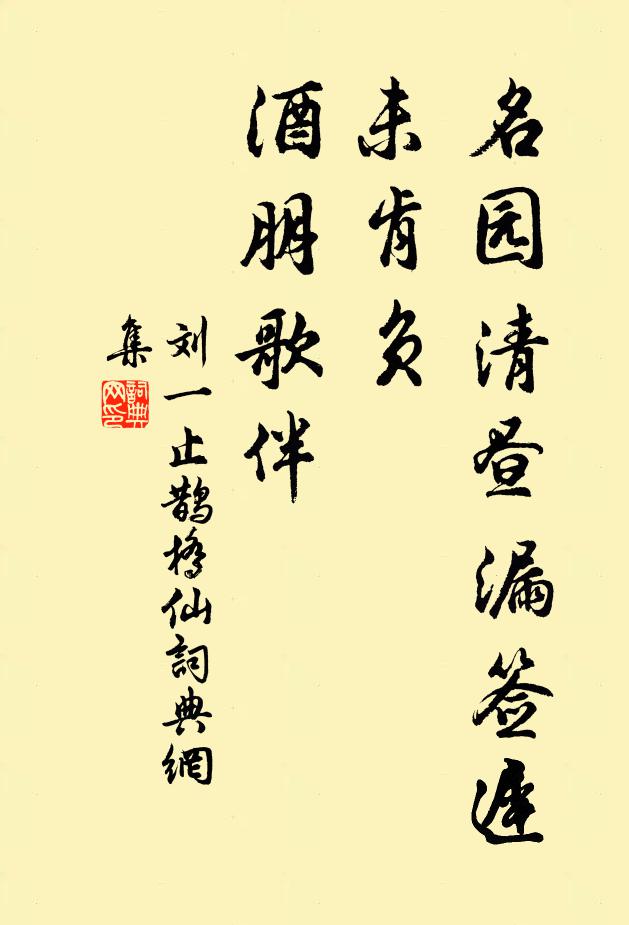 名园清昼漏签迟
未肯负
酒朋歌伴
刘一止鹊桥仙詞典網
集
詞典網印